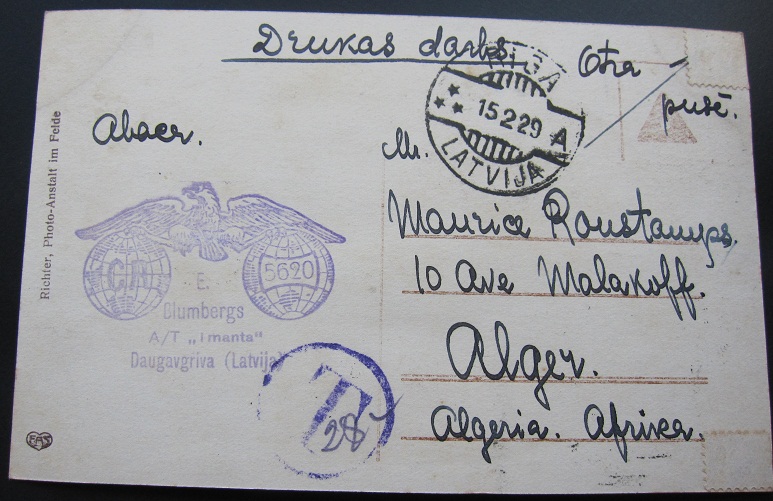 Drukas darbs.
Otra
pusē.
RIGA
15.2.29 A
LATVIJA
Abacer.
Mr.
Maurice Roustamps.
10 Ave Malakoff.
Alger.
Algeria. Afrika.
5620
E.
Blumbergs
A/T „Imanta“
Daugavgriva (Latvija)
T
28
Richter, Photo-Anstalt im Felde
EAS